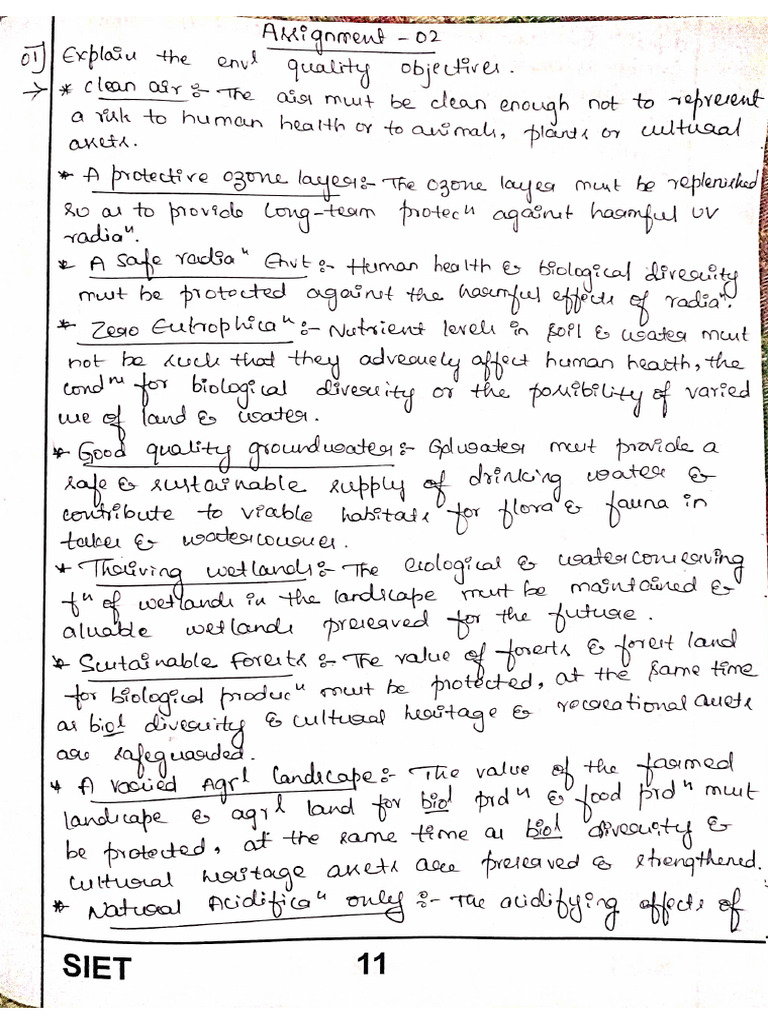 Assignment - 02
01] Explain the envl quality objectives.
→ * Clean air :- The air must be clean enough not to represent
a risk to human health or to animals, plants or cultural
assets.
* A protective ozone layer :- The ozone layer must be replenished
so as to provide long-term protecn against harmful UV
radian.
* A safe radian Envt :- Human health & biological diversity
must be protected against the harmful effects of radian.
* Zero Eutrophican :- Nutrient levels in soil & water must
not be such that they adversely affect human health, the
condns for biological diversity or the possibility of varied
use of land & water.
* Good quality groundwater :- Gdwater must provide a
safe & sustainable supply of drinking water &
contribute to viable habitats for flora & fauna in
lakes & watercourses.
* Thriving wetlands :- The ecological & water conserving
fn of wetlands in the landscape must be maintained &
aluable wetlands preserved for the future.
* Sustainable Forests :- The value of forests & forest land
for biological producn must be protected, at the same time
as biol diversity & cultural heritage & recreational assets
are safeguarded.
* A varied Agrl Landscape :- The value of the farmed
landscape & agrl land for biol prdn & food prdn must
be protected, at the same time as biol diversity &
cultural heritage assets are preserved & strengthened.
* Natural Acidifican only :- The acidifying effects of
SIET 11